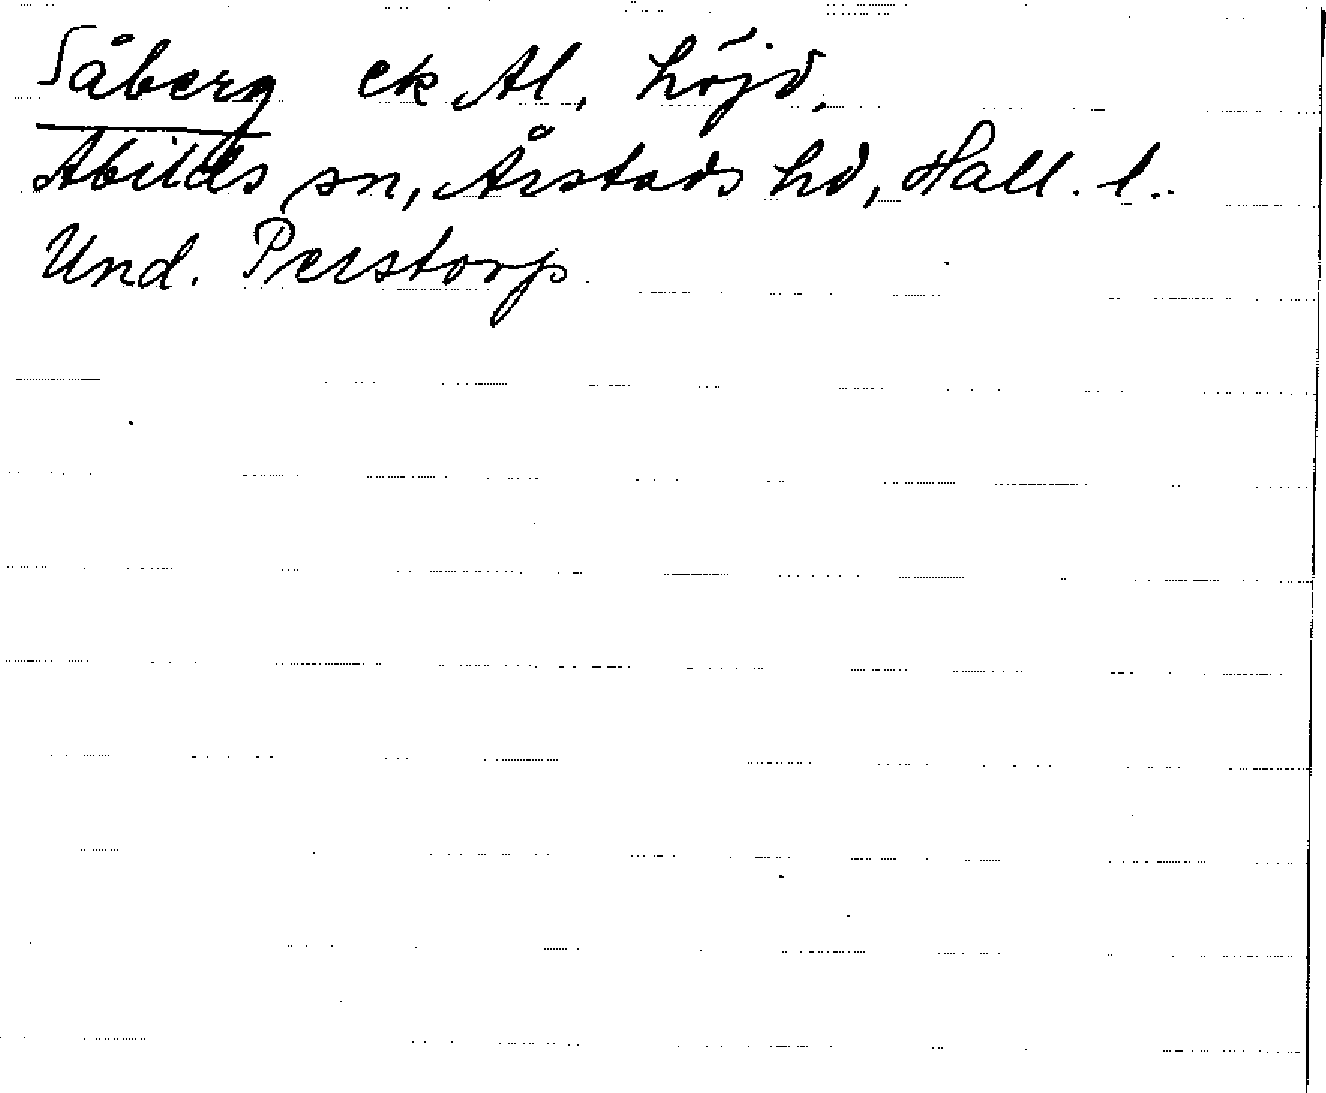 Såberg ek Al, höjd.
Abilds sn, Årstads hd, Hall. l.
Und. Perstorp.